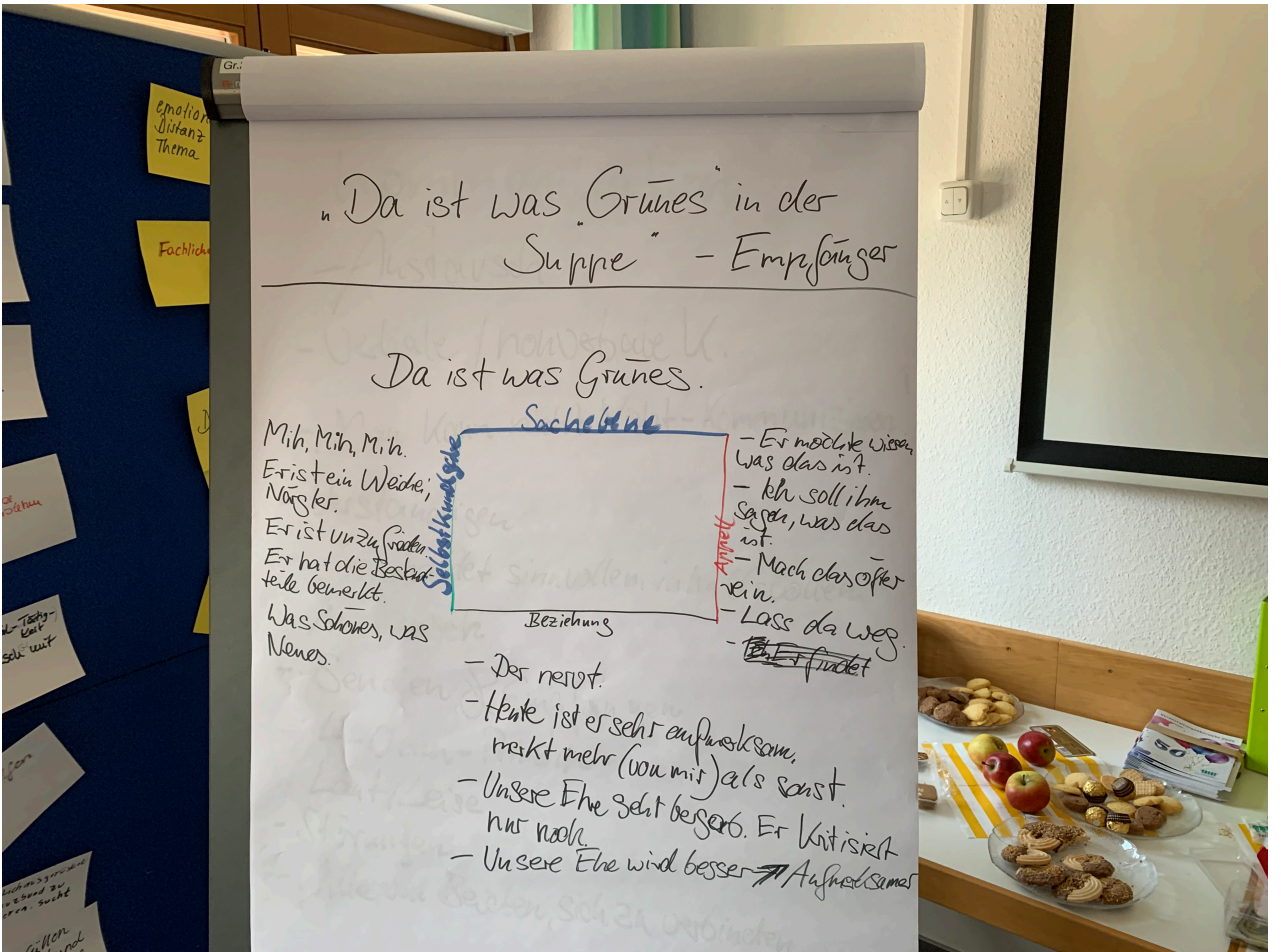 Gr.
emotion
Distanz
Thema
Fachlich
„Da ist was „Grünes" in der
Suppe" - Empfänger
Da ist was Grünes.
Sachebene
Selbstkundgabe
Mih, Mih, Mih.
Er ist ein Weichei,
Nörgler.
Er ist unzufrieden.
Er hat die Bestand-
teile bemerkt.
Was Schönes, was
Neues.
Appell
- Er möchte wissen
was das ist.
- Ich soll ihm
sagen, was das
ist.
- Mach das öfter
rein.
- Lass da weg.
- Er findet
Beziehung
- Der nervt.
- Heute ist er sehr aufmerksam,
merkt mehr (von mir) als sonst.
- Unsere Ehe geht bergab. Er kritisiert
nur noch.
- Unsere Ehe wird besser → Aufmerksamer
50